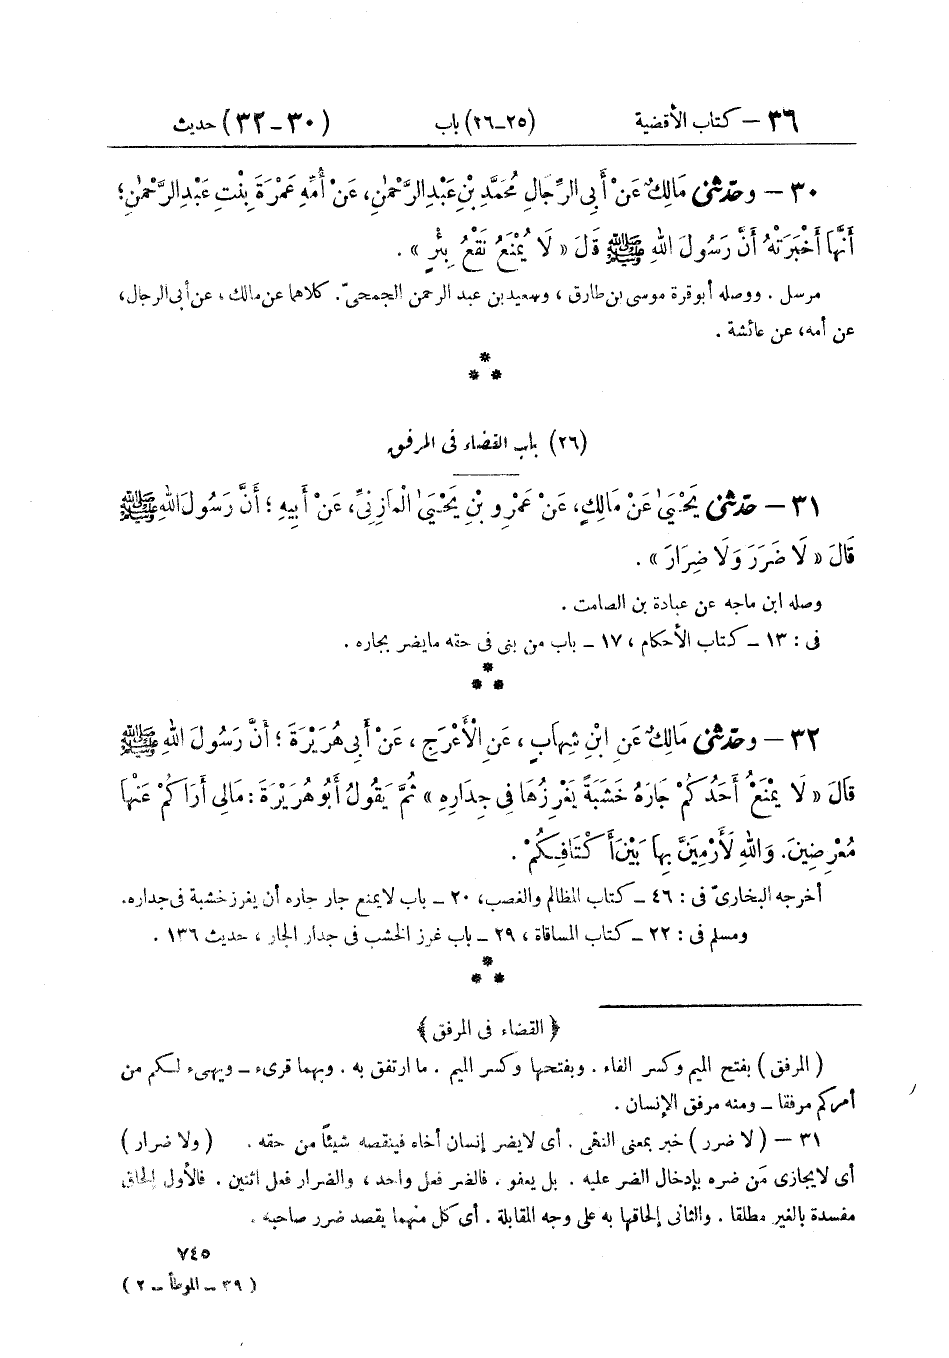 ٣٦ – كتاب الأقضية (٢٥–٢٦) باب (٣٠–٣٢) حديث
٣٠ – وحَدّثنى مَالِكٌ عَنْ أَبِى الرِّجَالِ مُحَمَّدِ بْنِ عَبْدِ الرَّحْمٰنِ، عَنْ أُمِّهِ عَمْرَةَ بِنْتِ عَبْدِ الرَّحْمٰنِ؛
أَنَّهَا أَخْبَرَتْهُ أَنَّ رَسُولَ اللهِ ﷺ قَلَ « لَا يُمْنَعُ نَقْعُ بِئْرٍ » .
مرسل . ووصله أبو قرة موسى بن طارق ، وسعيد بن عبد الرحمن الجمحىّ. كلاهما عن مالك ، عن أبى الرجال،
عن أمه، عن عائشة .
*
* *
(٢٦) باب القضاء فى المرفق
٣١ – حَدّثنى يَحْيَىٰ عَنْ مَالِكٍ، عَنْ عَمْرِو بْنِ يَحْيَىٰ الْمَازِنِىِّ، عَنْ أَبِيهِ ؛ أَنَّ رَسُولَ اللهِ ﷺ
قَالَ « لَا ضَرَرَ وَلَا ضِرَارَ » .
وصله ابن ماجه عن عبادة بن الصامت .
فى : ١٣ – كتاب الأحكام ، ١٧ – باب من بنى فى حقه مايضر بجاره .
*
* *
٣٢ – وحَدّثنى مَالِكٌ عَنِ ابْنِ شِهَابٍ ، عَنِ الْأَعْرَجِ ، عَنْ أَبِى هُرَيْرَةَ ؛ أَنَّ رَسُولَ اللهِ ﷺ
قَالَ « لَا يَمْنَعُ أَحَدُكُمْ جَارَهُ خَشَبَةً يَغْرِزُهَا فِى جِدَارِهِ » ثُمَّ يَقُولُ أَبُو هُرَيْرَةَ : مَالِى أَرَاكُمْ عَنْهَا
مُعْرِضِينَ. وَاللهِ لَأَرْمِيَنَّ بِهَا بَيْنَ أَكْتَافِكُمْ .
أخرجه البخارىّ فى : ٤٦ – كتاب المظالم والغصب، ٢٠ – باب لايمنع جار جاره أن يغرز خشبة فى جداره.
ومسلم فى : ٢٢ – كتاب المساقاة ، ٢٩ – باب غرز الخشب فى جدار الجار ، حديث ١٣٦ .
*
* *
﴿ القضاء فى المرفق ﴾
( المرفق ) بفتح الميم وكسر الفاء . وبفتحها وكسر الميم . ما ارتفق به . وبهما قرىء – ويهيىء لكم من
أمركم مرفقا – ومنه مرفق الإنسان .
٣١ – ( لا ضرر ) خبر بمعنى النهى . أى لايضر إنسان أخاه فينقصه شيئًا من حقه . ( ولا ضرار )
أى لايجازى مَن ضره بإدخال الضر عليه . بل يعفو . فالضر فعل واحد ، والضرار فعل اثنين . فالأول إلحاق
مفسدة بالغير مطلقا . والثانى إلحاقها به على وجه المقابلة . أى كل منهما يقصد ضرر صاحبه .
٧٤٥
( ٣٩ – الموطأ – ٢ )